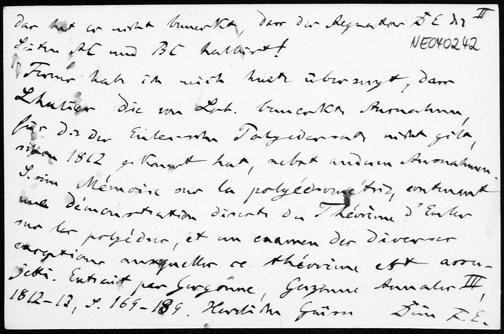 Dar hat er nicht bemerkt, dass der Aequator DE die II
NE040242
Seiten AC und BC halbirt!
Ferner hab ich mich heute überzeugt, dass
Lhuilier die von bemerkten Ausnahmen,
für die der Eulersche Polyedersatz nicht gilt,
schon 1812 gekannt hat, nebst anderen Ausnahmen.
S. sein Mémoire sur la polyédrométrie, contenant
une démonstration directe du Théorème d'Euler
sur les polyèdres, et un examen des diverses
exceptions auxquelles ce théorème est assu-
jetti. Extrait par Gergonne, Gergonne Annales III,
1812-13, S. 169-189. Herzliche Grüsse Dein F. E.